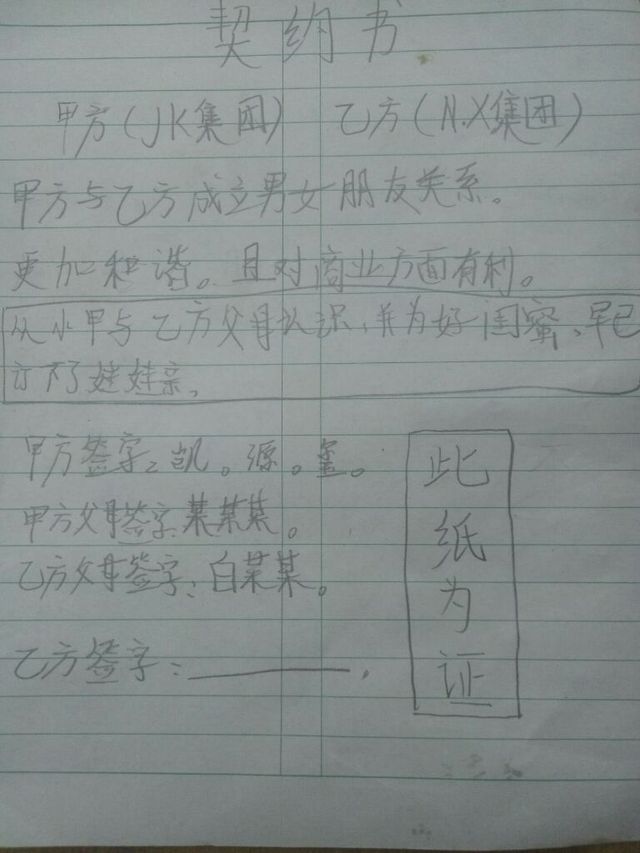 契约书
甲方(JK集团) 乙方(N.X集团)
甲方与乙方成立男女朋友关系。
更加和谐。且对商业方面有利。
从小甲与乙方父母认识,并为好闺蜜,早已
订下了娃娃亲。
甲方签字:凯。源。玺。
甲方父母签字:某某某。
乙方父母签字:白某某。
乙方签字:
此
纸
为
证